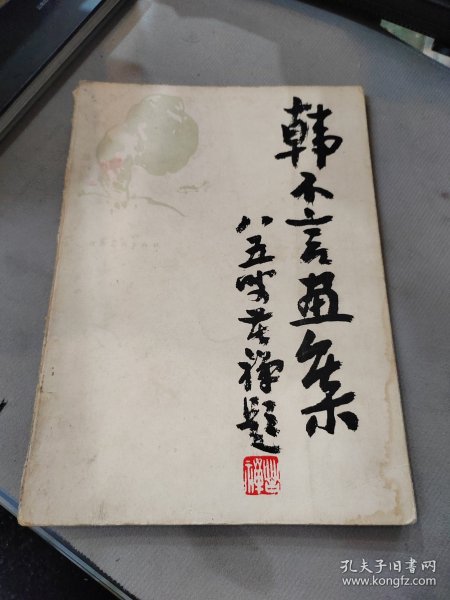 韩不言画集
八五叟苦禅题
孔夫子旧书网
www.kongfz.com